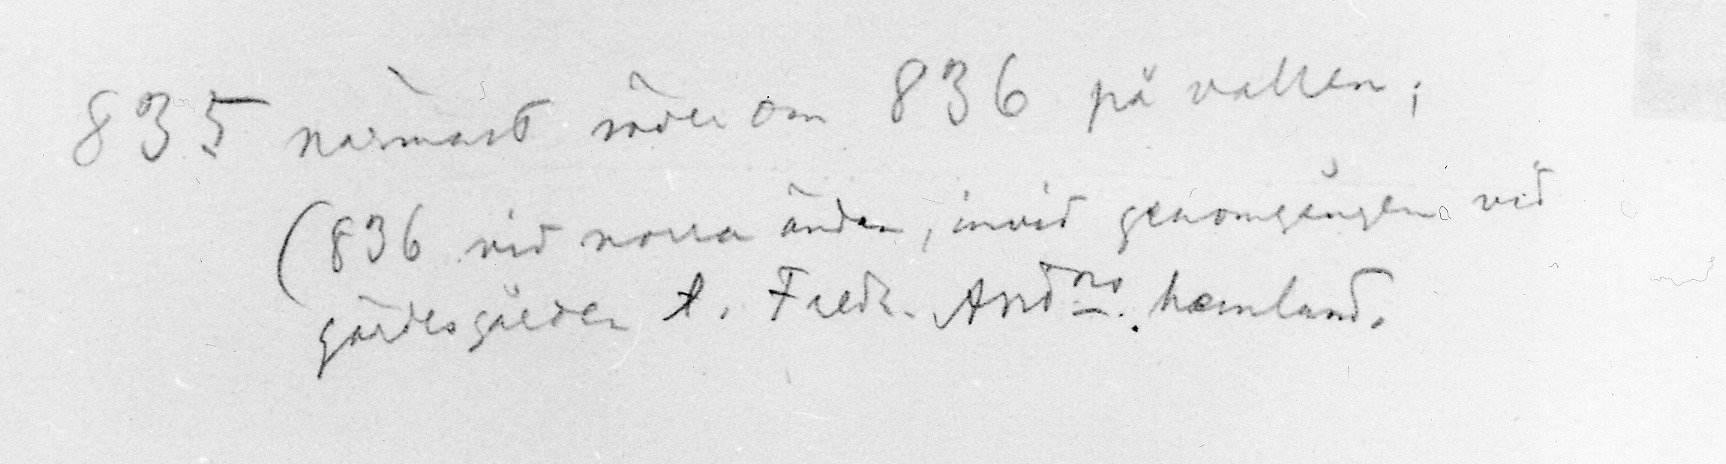 835 närmast söder om 836 på vallen;
(836 vid norra ändan, invid genomgången vid
gärdesgården t. Fredr. And:ns hemland.